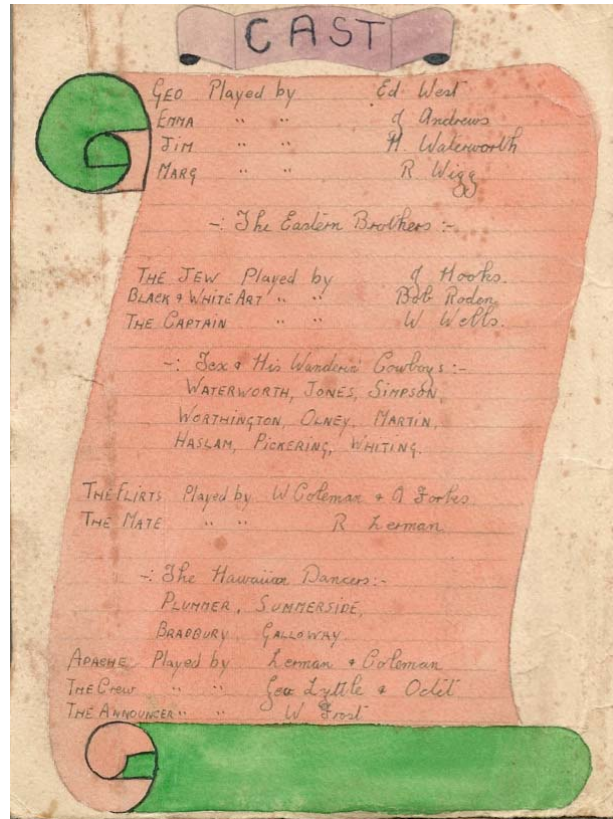 CAST
GEO Played by Ed West
EMMA " " J Andrews
JIM " " H Waterworth
MARG " " R Wigg
-: The Eastern Brothers :-
THE JEW Played by J Hooks.
BLACK & WHITE ART " " Bob Roden
THE CAPTAIN " " W Wells.
-: Tex & His Wanderin' Cowboys :-
WATERWORTH, JONES, SIMPSON,
WORTHINGTON, OLNEY, MARTIN,
HASLAM, PICKERING, WHITING.
THE FLIRTS Played by W Coleman & A Forbes
THE MATE " " R Lerman
-: The Hawaiian Dancers :-
PLUMMER, SUMMERSIDE,
BRADBURY, GALLOWAY
APACHE Played by Lerman & Coleman
The Crew " " Geo Lyttle &
THE ANNOUNCER " " W Frost